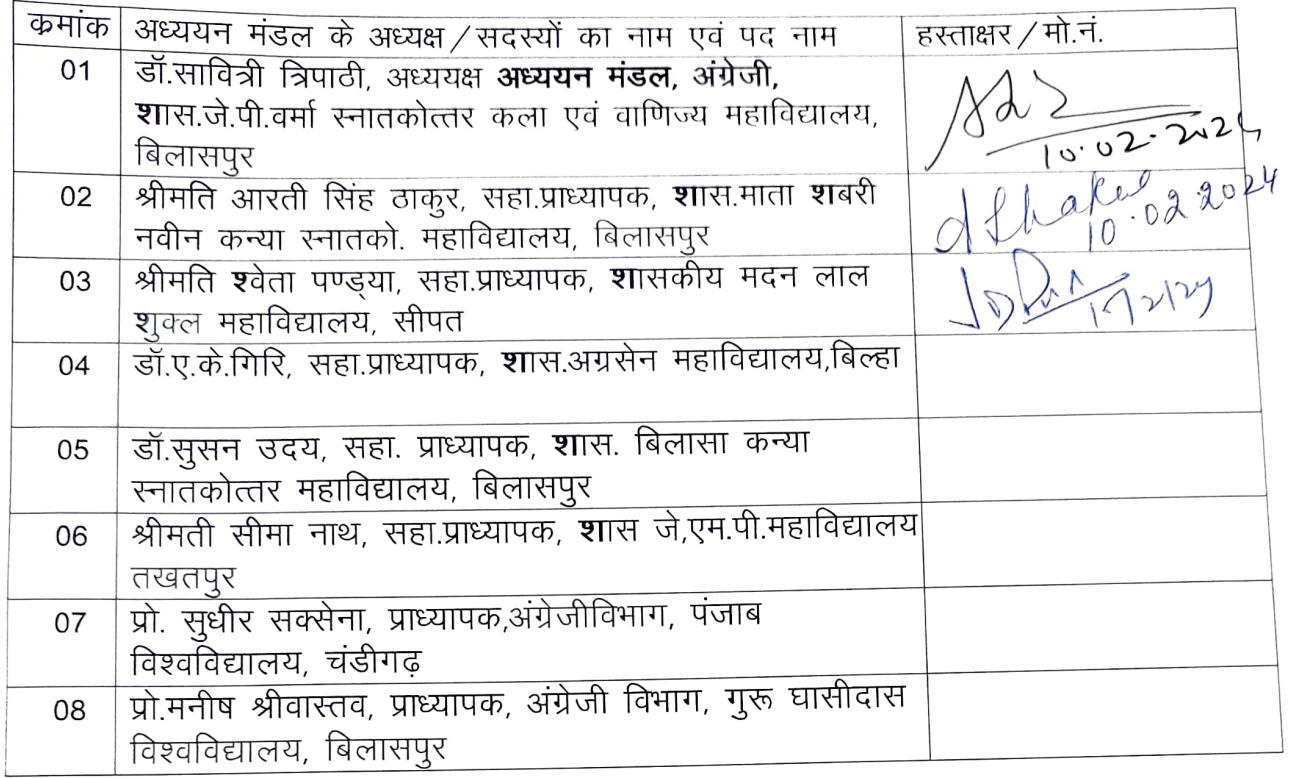 क्रमांक अध्ययन मंडल के अध्यक्ष/सदस्यों का नाम एवं पद नाम हस्ताक्षर/मो.नं.
01 डॉ.सावित्री त्रिपाठी, अध्ययक्ष अध्ययन मंडल, अंग्रेजी,
शास.जे.पी.वर्मा स्नातकोत्तर कला एवं वाणिज्य महाविद्यालय,
बिलासपुर
10.02.2024
02 श्रीमति आरती सिंह ठाकुर, सहा.प्राध्यापक, शास.माता शबरी
नवीन कन्या स्नातको. महाविद्यालय, बिलासपुर
10.02.2024
03 श्रीमति श्वेता पण्ड्या, सहा.प्राध्यापक, शासकीय मदन लाल
शुक्ल महाविद्यालय, सीपत
04 डॉ.ए.के.गिरि, सहा.प्राध्यापक, शास.अग्रसेन महाविद्यालय,बिल्हा
05 डॉ.सुसन उदय, सहा. प्राध्यापक, शास. बिलासा कन्या
स्नातकोत्तर महाविद्यालय, बिलासपुर
06 श्रीमती सीमा नाथ, सहा.प्राध्यापक, शास जे,एम.पी.महाविद्यालय
तखतपुर
07 प्रो. सुधीर सक्सेना, प्राध्यापक,अंग्रेजीविभाग, पंजाब
विश्वविद्यालय, चंडीगढ़
08 प्रो.मनीष श्रीवास्तव, प्राध्यापक, अंग्रेजी विभाग, गुरू घासीदास
विश्वविद्यालय, बिलासपुर